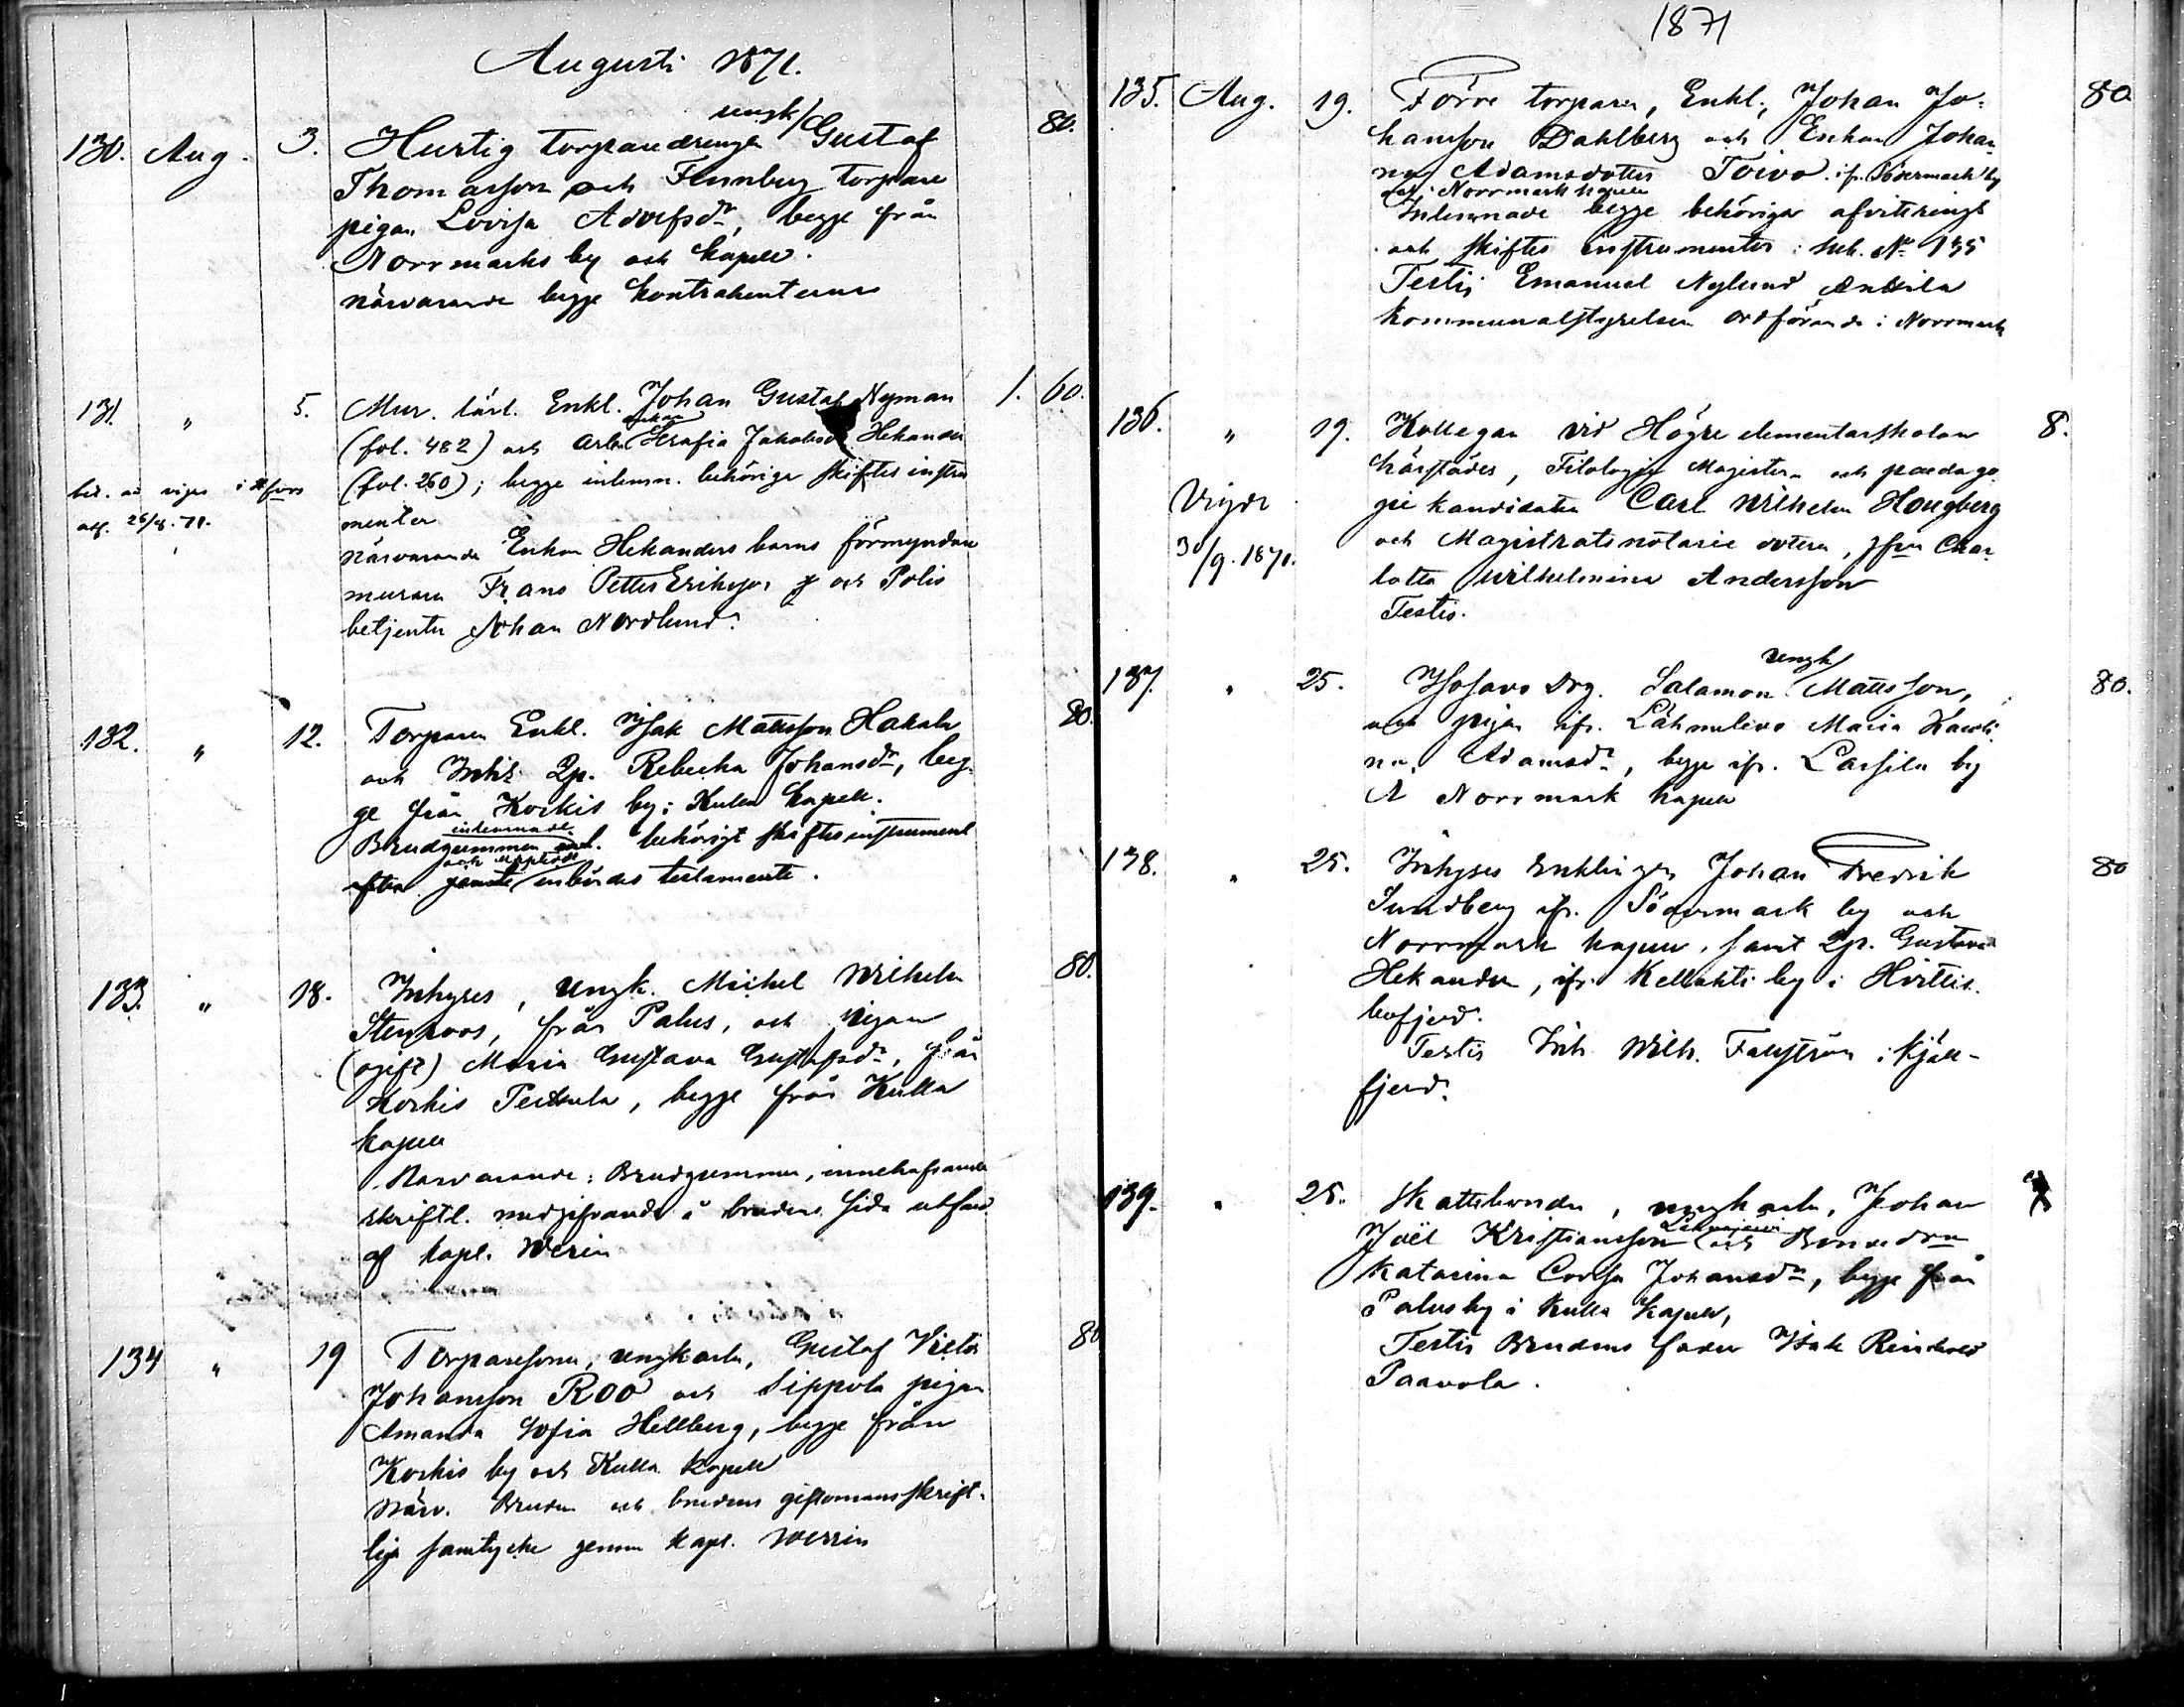 Augusti 1871.
130. Aug. 3. Hurtig torparedrengen ungk/ Gustaf 80.
Thomasson och Finnberg torpare
pigan Lovisa Adolfsdr, begge från
Norrmarks by och kapell.
närvarande begge kontrahenterne
131. " 5. Mur. lärl. Enkl. Johan Gustaf Nyman 1. 60.
(fol. 482) och Enkan Serafia Jakobsdr Hekander
(fol. 260); begge inlemn. behöriga skiftes instru
menter
att. 26/8. 71.
närvarande Enkan Hekanders barns förmyndare
murare Frans Petter Eriksson och Polis
betjenten Johan Nordlund.
132. " 12. Torparen Enkl. Isak Mattsson Hakala 80.
och Inhis Qp. Rebecka Johansdr, beg-
ge från Korkis by i Kulla kapell.
Brudgummen inlemnade behörigt skiftesinstrument
inbördes testamente.
133. " 18. Inhyses, Ungk. Michel Wilhelm 80.
Stenroos, från Palus, och pigan
(ogift) Maria Gustava Gustafsdr, från
Korkis Perttula, begge från Kulla
kapell
Närvarande: Brudgummen, innehafvande
skriftl. medgifvande å brudens sida utfärd.
af kapl. Werin
134 " 19 Torparesonen, ungkarlen, Gustaf Victor 80
Johansson Roo och Sippola pigan
Amanda Sofia Hellberg, begge från
Korkis by och Kulla kapell
Närv. Bruden och brudens giftomans skrift-
liga samtycke genom kapl. Werrin
1871
135. Aug. 19. Förre torparen, Enkl., Johan Jo- 80
hansson Dahlberg och Enkan Johan-
na Adamsdotter Toivo ifr. Södermark by
och Norrmark kapell
Inlemnade begge behöriga afvittrings
och skiftes instrumenter sub. No 135
Testis Emanuel Nylund Anttila
kommunalstyrelsen ordförande i Norrmark
136. " 19. Kollegan vid Högre elementarskolan 8.
härstädes, Filologie Magistern och paedago
gie kandidaten Carl Wilhelm Hougberg
Vigde
30/9. 1871.
och Magistrats notarie dotern, jfrn Char
lotta Wilhelmina Andersson
Testis.
137. " 25. Isosavo drg. Salamon ungk/ Mattsson, 80.
och pigan ifr. Lähmulevo Maria Karoli
na Adamsdr, begge ifr. Lassila by
Norrmark kapell
138. " 25. Inhyses enklingen Johan Fredrik 80
Sundberg ifr. Södermark by och
Norrmark kapell, samt Qp. Gustava
Hekander, ifr. Kellahti by i Hvittis
bofjerd.
Testis Inh. Wilh. Fallström i Kjäll-
fjerd.
139. " 25. Skattebonden, ungkarlen, Johan
Joël Kristiansson och Bondedrn
Katarina Lovisa Johansdr, begge från
Palus by i Kulla kapell,
Testis Brudens fader Isak Reinhold
Paavola.